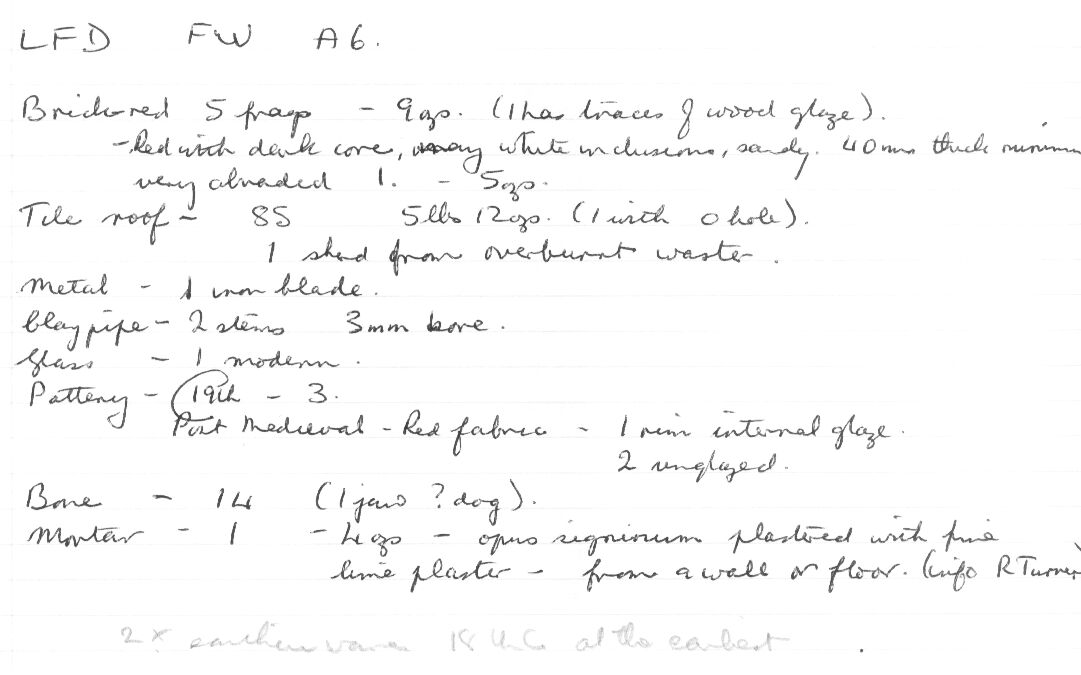 LFD FW A6.
Brick-red 5 frags - 9ozs. (1 has traces of wood glaze).
- Red with dark core, many white inclusions, sandy. 40mm thick minimum
very abraded 1. - 5ozs.
Tile roof - 85 5lbs 12ozs. (1 with o hole).
1 sherd from overburnt waster.
Metal - 1 iron blade.
Clay pipe - 2 stems 3mm bore.
Glass - 1 modern.
Pottery - 19th - 3.
Post Medieval - Red fabric - 1 rim internal glaze.
2 unglazed.
Bone - 14 (1 jaw ? dog).
Mortar - 1 - 4ozs - opus signinum plastered with fine
lime plaster - from a wall or floor. (info R Turner)
2 x earthenware 18thC at the earliest.